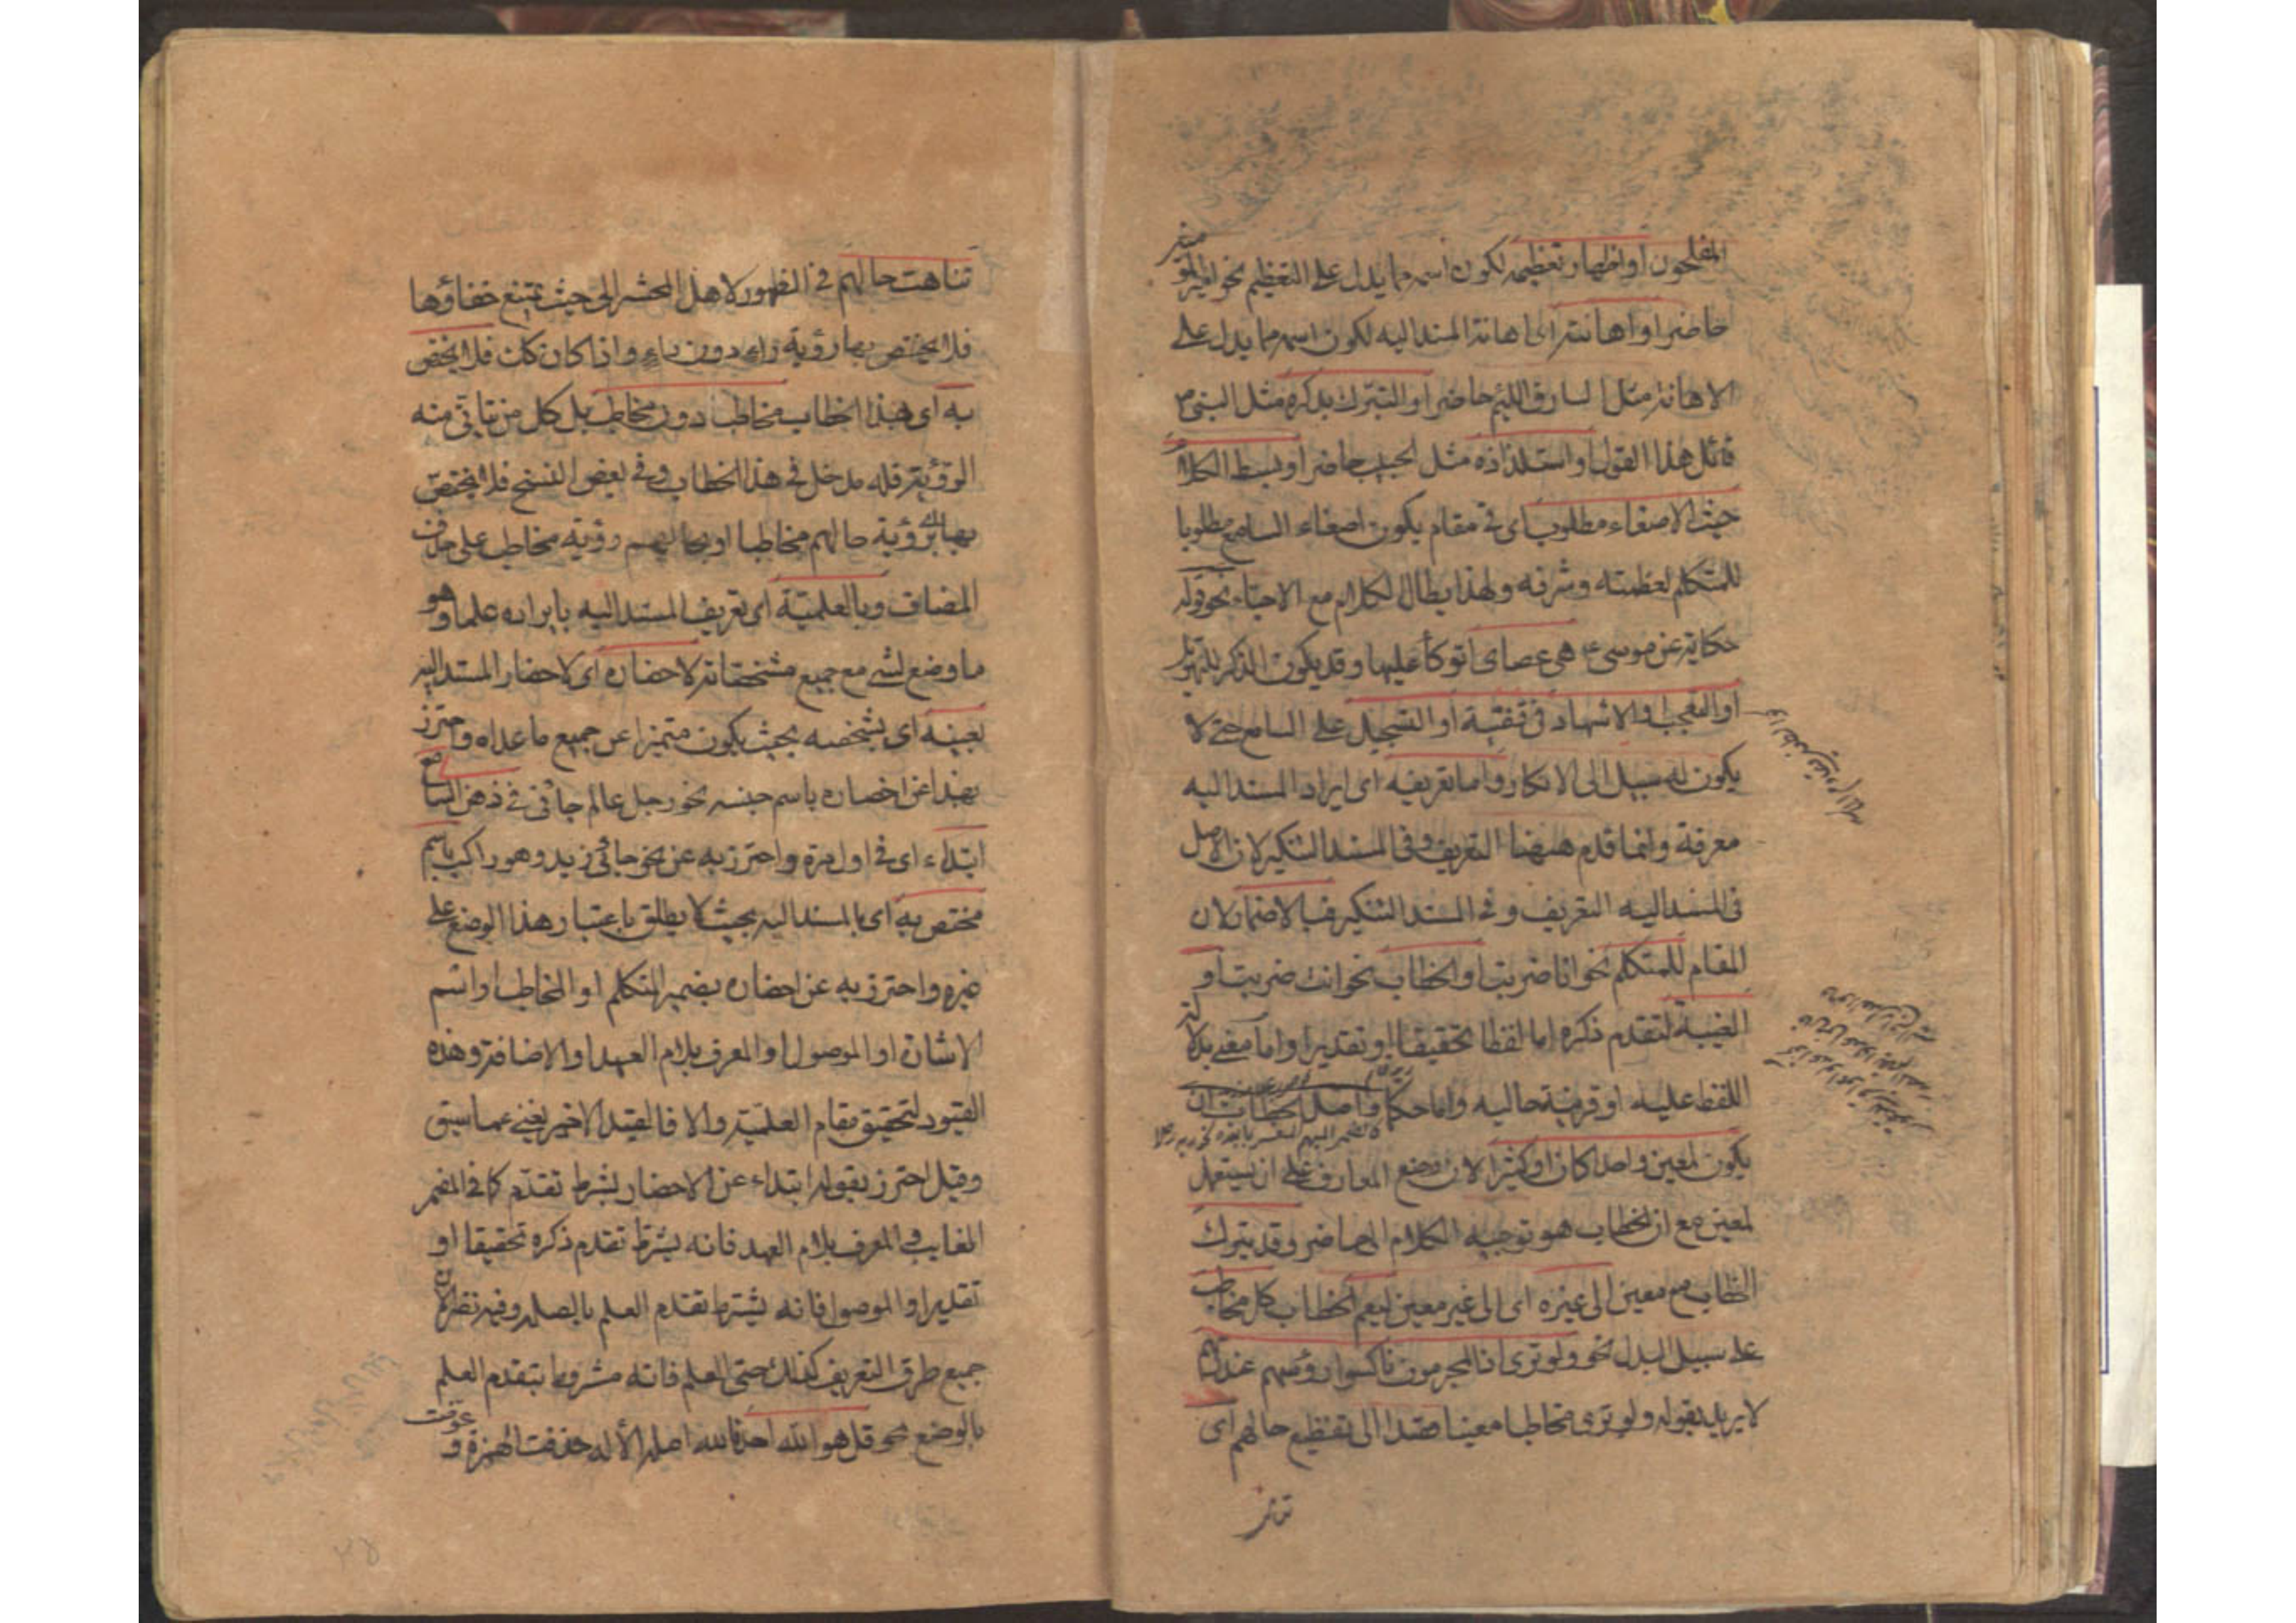 المفلحون او اظهار تعظيمه لكون اسمه مما يدل على التعظيم نحو امير المؤمنين
حاضر او اهانته اى اهانة المسند اليه لكون اسمه مما يدل على
الاهانة مثل السارق اللئيم حاضر او التبرك بذكره مثل النبى ع م
قائل هذا القول او استلذاذه مثل الحبيب حاضر او بسط الكلام
حيث الاصغاء مطلوب اى فى مقام يكون اصغاء السامع مطلوبا
للمتكلم لعظمته وشرفه ولهذا يطال الكلام مع الاحباء نحو قوله
حكاية عن موسى ع هى عصاى اتوكأ عليها وقد يكون الذكر للتهويل
او التعجب او الاشهاد فى قضية او التسجيل على السامع حتى لا
يكون له سبيل الى الانكار واما تعريفه اى ايراد المسند اليه
معرفة وانما قدم ههنا التعريف وفى المسند التنكير لان الاصل
فى المسند اليه التعريف و فى المسند التنكير فبالاضمار لان
المقام للمتكلم نحو انا ضربت او الخطاب نحو انت ضربت او
الغيبة لتقدم ذكره اما لفظا تحقيقا او تقديرا واما معنى بدلالة
اللفظ عليه او قرينة حاليه واما حكما واصل الخطاب ان
يكون لمعين واحدا كان او كثيرا لان وضع المعارف على ان يستعمل
لمعين مع ان الخطاب هو توجيه الكلام الى حاضر وقد يترك
الخطاب مع معين الى غيره اى الى غير معين ليعم الخطاب كل مخاطب
على سبيل البدل نحو ولو ترى اذ المجرمون ناكسوا رؤسهم عند ربهم
لا يريد بقوله ولو ترى مخاطبا معينا قصدا الى تفظيع حالهم اى
تناهت
تناهت حالهم فى الظهور لاهل المحشر الى حيث يمتنع خفاؤها
فلا يختص بها رؤية راء دون راء واذا كان كك فلا يختص
به اى بهذا الخطاب مخاطب دون مخاطب بل كل من يتأتى منه
الرؤية فله مدخل فى هذا الخطاب وفى بعض النسخ فلا يختص
بها اى برؤية حالهم مخاطبا او بحالهم رؤية مخاطب على حذف
المضاف وبالعلمية اى تعريف المسند اليه بايراده علما وهو
ما وضع لشئ مع جميع مشخصاته لاحضاره اى لاحضار المسند اليه
بعينه اى بشخصه بحيث يكون متميزا عن جميع ما عداه واحترز
بهذا عن احضاره باسم جنسه نحو رجل عالم جاءنى فى ذهن السامع
ابتداء اى فى اول مرة واحترز به عن نحو جاءنى زيد وهو راكب باسم
مختص به اى بالمسند اليه بحيث لا يطلق باعتبار هذا الوضع على
غيره واحترز به عن احضاره بضمير المتكلم او المخاطب او اسم
الاشارة او الموصول او المعرف بلام العهد او الاضافة وهذه
القيود لتحقيق مقام العلمية والا فالقيد الاخير يغنى عما سبق
وقيل احترز بقوله ابتداء عن الاحضار بشرط تقدم كما فى المضمر
الغايب و المعرف بلام العهد فانه يشترط تقدم ذكره تحقيقا او
تقديرا والموصول فانه يشترط تقدم العلم بالصلة وفيه نظر لان
جميع طرق التعريف كذلك حتى العلم فانه مشروط بتقدم العلم
بالوضع نحو قل هو الله احد فالله اصله الأله حذفت الهمزة و عوضت